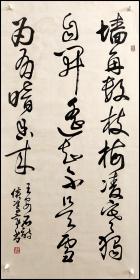 墙角数枝梅凌寒独
自开遥知不是雪
为有暗香来
王安石诗